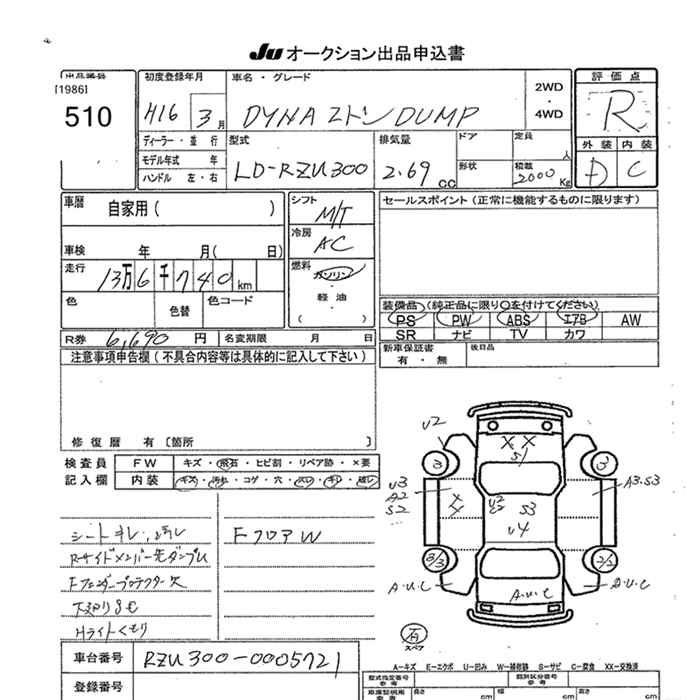 JU オークション出品申込書
出品番号
[1986]
510
初度登録年月
H16 3月
車名・グレード
DYNA 2トン DUMP
2WD
・
4WD
評価点
R
外装 内装
D C
ディーラー・並行
モデル年式 年
ハンドル 左・右
型式
LD-RZU300
排気量
2.69 CC
ドア
形状
定員
人
積載
2000 Kg
車歴
自家用( )
車検 年 月( 日)
走行
13万6千740km
色
色替
色コード
シフト
M/T
冷房
AC
燃料
ガソリン
・
軽油
・
( )
セールスポイント(正常に機能するものに限ります)
装備品(純正品に限り○を付けてください)
PS PW ABS エアB AW
SR ナビ TV カワ
新車保証書
有・無
後日品
R券 6,690 円
名変期限 月 日
注意事項申告欄(不具合内容等は具体的に記入して下さい)
修復歴 有〔箇所 〕
検査員
記入欄
FW キズ・飛石・ヒビ割・リペア跡・×要
内装 キズ・汚れ・コゲ・穴・スレ・キレ・破レ
シートキレ、汚レ
RサイドメンバーモダンプU
Fフェンダープロテクター欠
下廻りSC
Hライトくもり
FフロアW
U2
XX
S1
3
3
U3
A2
S2
XX
U2
S2
S3
U4
A3.S3
3/3
2/2
A.U.C
A.U.C
A.U.C
有
スペア
車台番号 RZU300-0005721
登録番号
A-キズ E-エクボ U-凹み W-補修跡 S-サビ C-腐食 XX-交換済
型式指定番号
参考
類別区分番号
参考
車庫証明用
参考
長さ cm
幅 cm
高さ cm